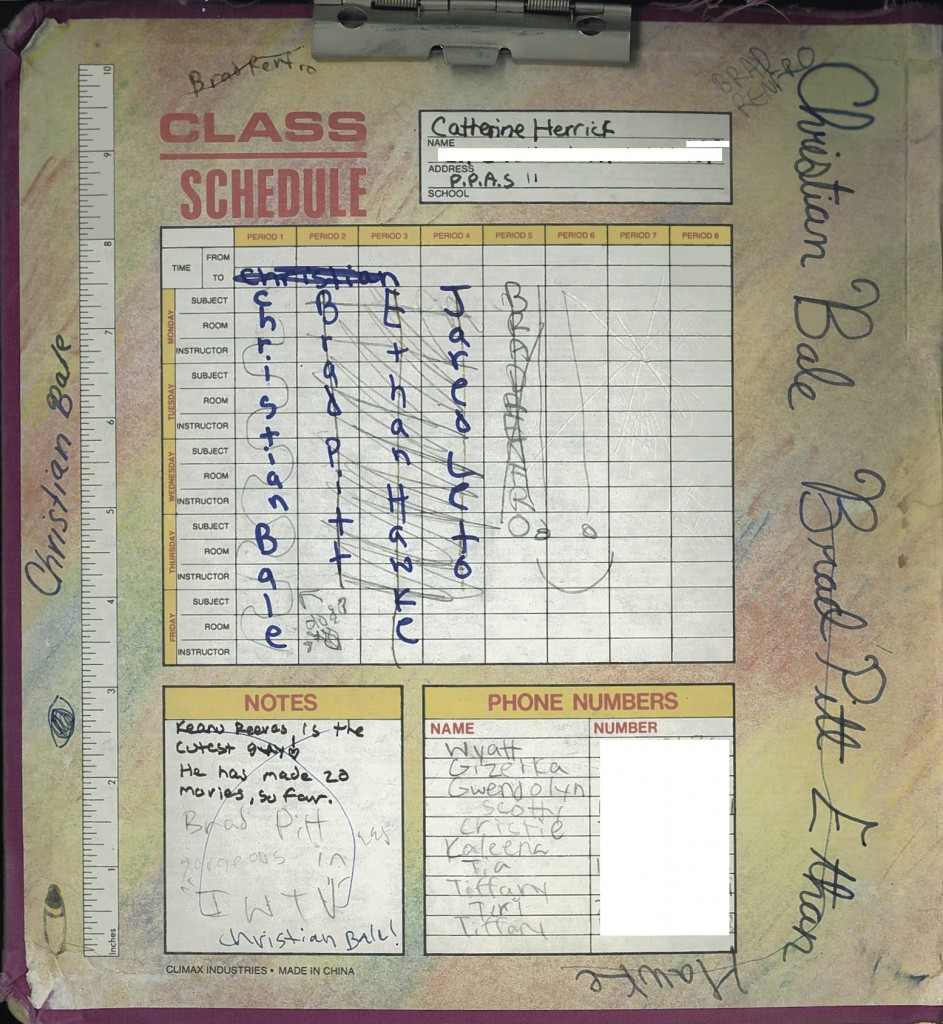 Brad Renfro
BRAD
RENFRO
CLASS
SCHEDULE
Catherine Herrick
NAME
ADDRESS
P.P.A.S 11
SCHOOL
PERIOD 1 PERIOD 2 PERIOD 3 PERIOD 4 PERIOD 5 PERIOD 6 PERIOD 7 PERIOD 8
TIME
FROM
TO
christian
MONDAY
SUBJECT
ROOM
INSTRUCTOR
TUESDAY
SUBJECT
ROOM
INSTRUCTOR
WEDNESDAY
SUBJECT
ROOM
INSTRUCTOR
THURSDAY
SUBJECT
ROOM
INSTRUCTOR
FRIDAY
SUBJECT
ROOM
INSTRUCTOR
Christian Bale
Brad Pitt
Ethan Hawke
Jared Leto
Christian Bale
10
9
8
7
6
5
4
3
2
1
Inches
Christian Bale Brad Pitt Ethan
Hawke
NOTES
Keanu Reeves, is the
cutest guy
He has made 20
movies, so far.
Brad Pitt was
gorgeous in
"IWTV"
Christian Bale!
PHONE NUMBERS
NAME NUMBER
Wyatt
Gizelka
Gwendolyn
Scotty
Cristie
Kaleena
Tia
Tiffany
Tiffany
CLIMAX INDUSTRIES • MADE IN CHINA